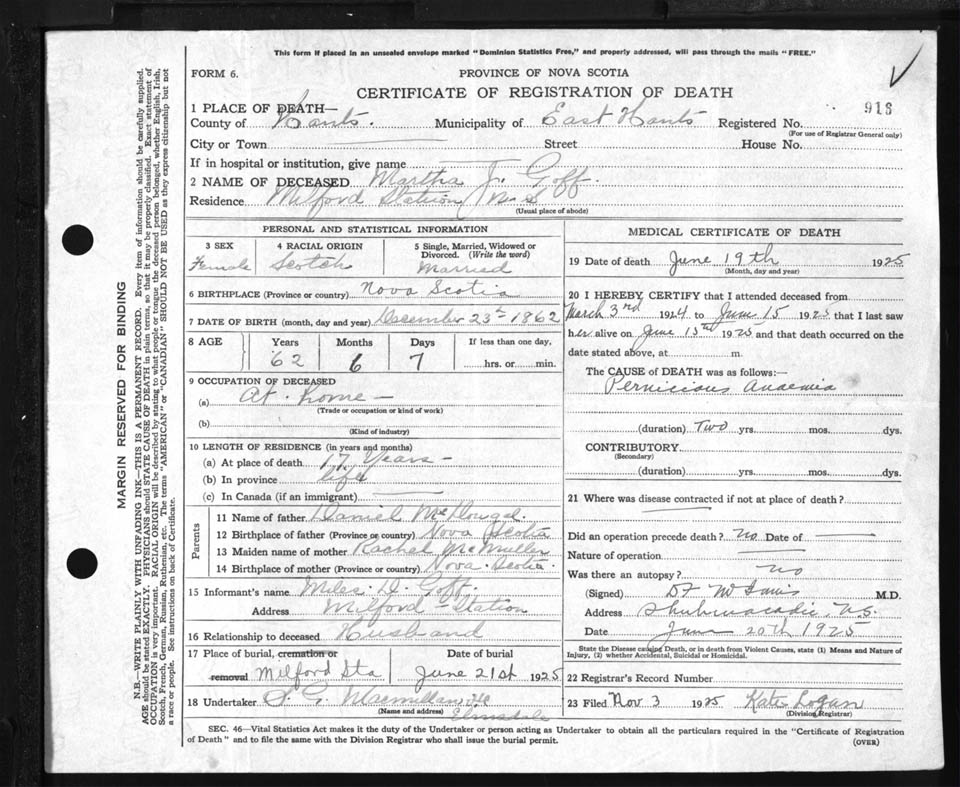 This form if placed in an unsealed envelope marked "Dominion Statistics Free," and properly addressed, will pass through the mails "FREE."
FORM 6.
PROVINCE OF NOVA SCOTIA
CERTIFICATE OF REGISTRATION OF DEATH
913
1 PLACE OF DEATH—
County of Hants. Municipality of East Hants Registered No.
(For use of Registrar General only)
City or Town Street House No.
If in hospital or institution, give name
2 NAME OF DECEASED Martha J. Goff.
Residence Milford Station N.S
(Usual place of abode)
PERSONAL AND STATISTICAL INFORMATION
3 SEX 4 RACIAL ORIGIN 5 Single, Married, Widowed or Divorced. (Write the word)
Female Scotch Married
6 BIRTHPLACE (Province or country) Nova Scotia
7 DATE OF BIRTH (month, day and year) December 23rd 1862
8 AGE Years Months Days If less than one day,
62 6 7 hrs. or min.
9 OCCUPATION OF DECEASED
(a) At home
(Trade or occupation or kind of work)
(b)
(Kind of industry)
10 LENGTH OF RESIDENCE (in years and months)
(a) At place of death 17 Years
(b) In province life
(c) In Canada (if an immigrant)
Parents
11 Name of father Daniel McDougal
12 Birthplace of father (Province or country) Nova Scotia
13 Maiden name of mother Rachel McMullen
14 Birthplace of mother (Province or country) Nova Scotia
15 Informant's name Miles D. Goff.
Address Milford Station
16 Relationship to deceased Husband
17 Place of burial, cremation or removal Date of burial
Milford Sta June 21st 1925
18 Undertaker S. G. Macmillan
(Name and address) Elmsdale
MEDICAL CERTIFICATE OF DEATH
19 Date of death June 19th 1925
(Month, day and year)
20 I HEREBY CERTIFY that I attended deceased from
March 3rd 1924 to June 15 1925 that I last saw
her alive on June 15th 1925 and that death occurred on the
date stated above, at m.
The CAUSE of DEATH was as follows:
Pernicious Anaemia
(duration) Two yrs. mos. dys.
CONTRIBUTORY
(Secondary)
(duration) yrs. mos. dys.
21 Where was disease contracted if not at place of death?
Did an operation precede death? no Date of
Nature of operation
Was there an autopsy? no
(Signed) M.D.
Address Shubenacadie N.S.
Date June 20th 1925
State the Disease causing Death, or in death from Violent Causes, state (1) Means and Nature of
Injury, (2) whether Accidental, Suicidal or Homicidal.
22 Registrar's Record Number
23 Filed Nov 3 1925 Kate Logan
(Division Registrar)
SEC. 46—Vital Statistics Act makes it the duty of the Undertaker or person acting as Undertaker to obtain all the particulars required in the "Certificate of Registration
of Death" and to file the same with the Division Registrar who shall issue the burial permit.
(OVER)
MARGIN RESERVED FOR BINDING
N.B.—WRITE PLAINLY WITH UNFADING INK—THIS IS A PERMANENT RECORD. Every item of information should be carefully supplied.
AGE should be stated EXACTLY. PHYSICIANS should STATE CAUSE OF DEATH in plain terms, so that it may be properly classified. Exact statement of
OCCUPATION is very important. RACIAL ORIGIN will be described by stating to what people or tongue the deceased person belonged, whether English, Irish,
Scotch, French, German, Russian, Ruthenian, etc. The terms "AMERICAN" or "CANADIAN" SHOULD NOT BE USED as they express citizenship but not
a race or people. See instructions on back of Certificate.